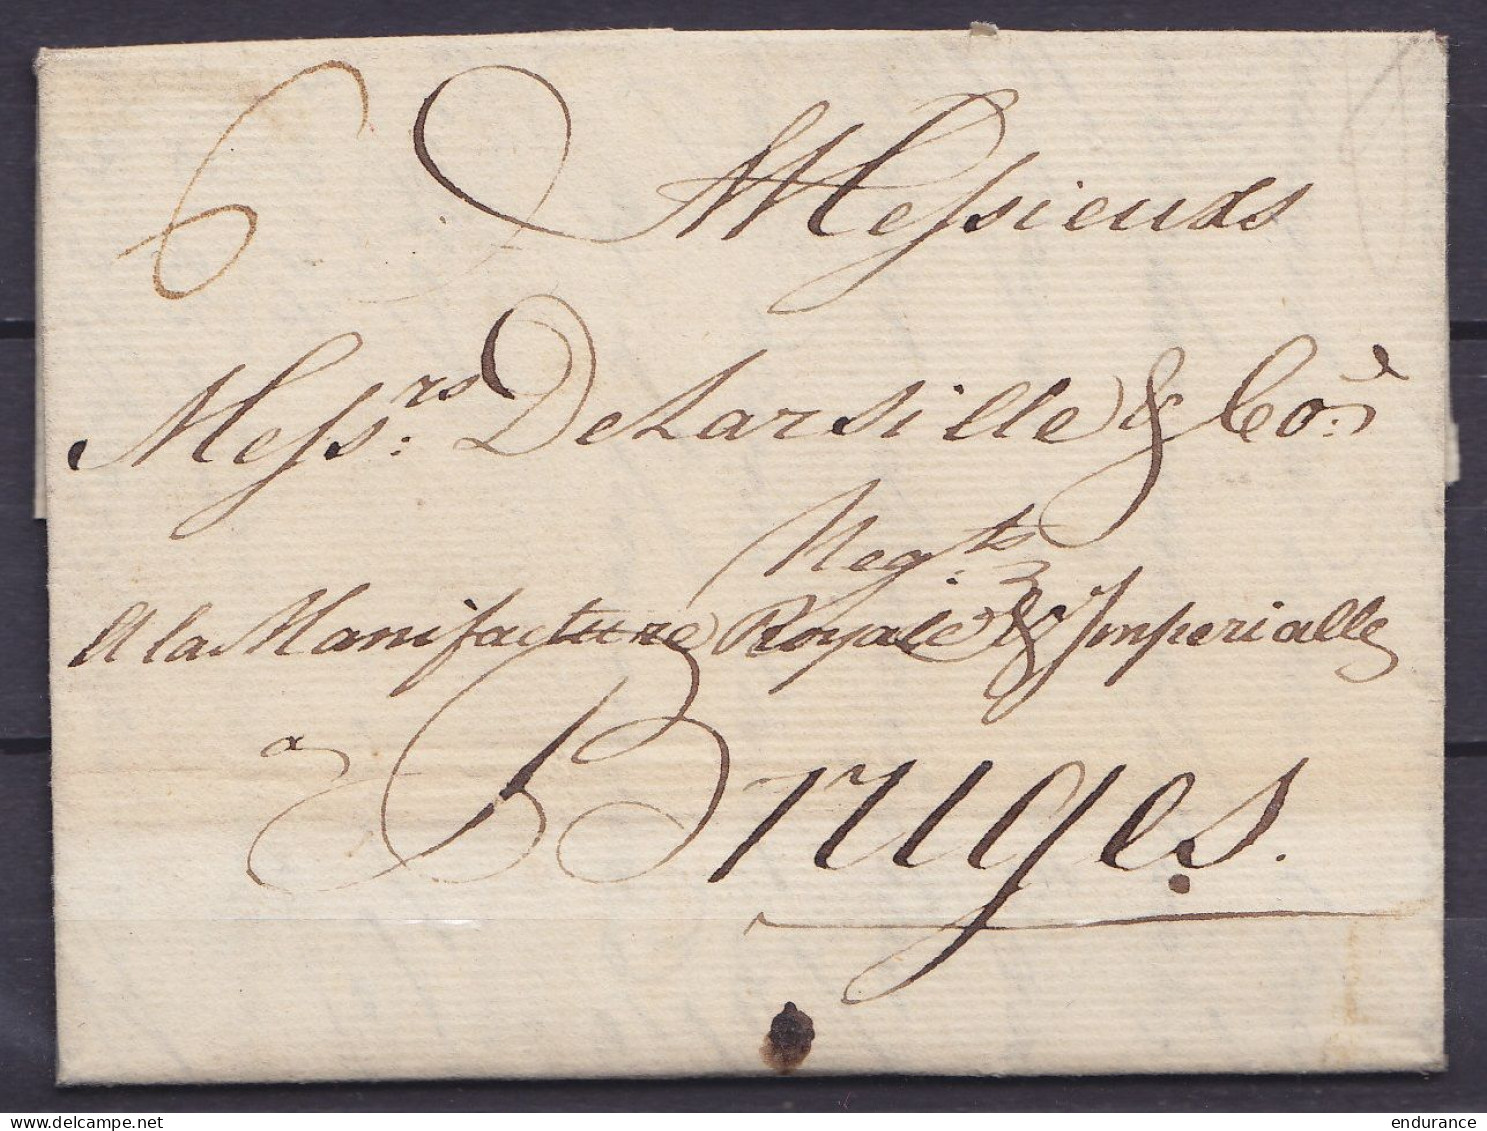 6 Messieurs
Mess:rs DeLarsille & Co:n
Neg:ts
A la Manifacture Royale & Imperialle
a Bruges.
endurance